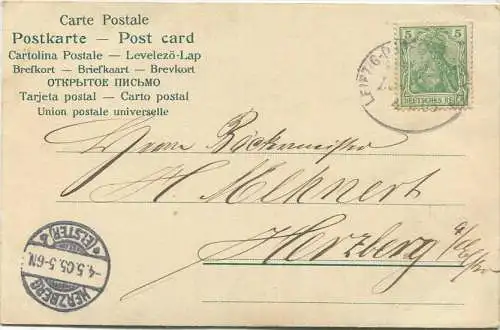 Carte Postale
Postkarte — Post card
Cartolina Postale — Levelező-Lap
Brefkort — Briefkaart — Brevkort
ОТКРЫТОЕ ПИСЬМО
Tarjeta postal — Carto postal
Union postale universelle
5 5
DEUTSCHES REICH
Herrn Böckermeister
H. Mehnert
Herzberg
a/Elster
HERZBERG
(ELSTER)
4.5.05. 5-6N.